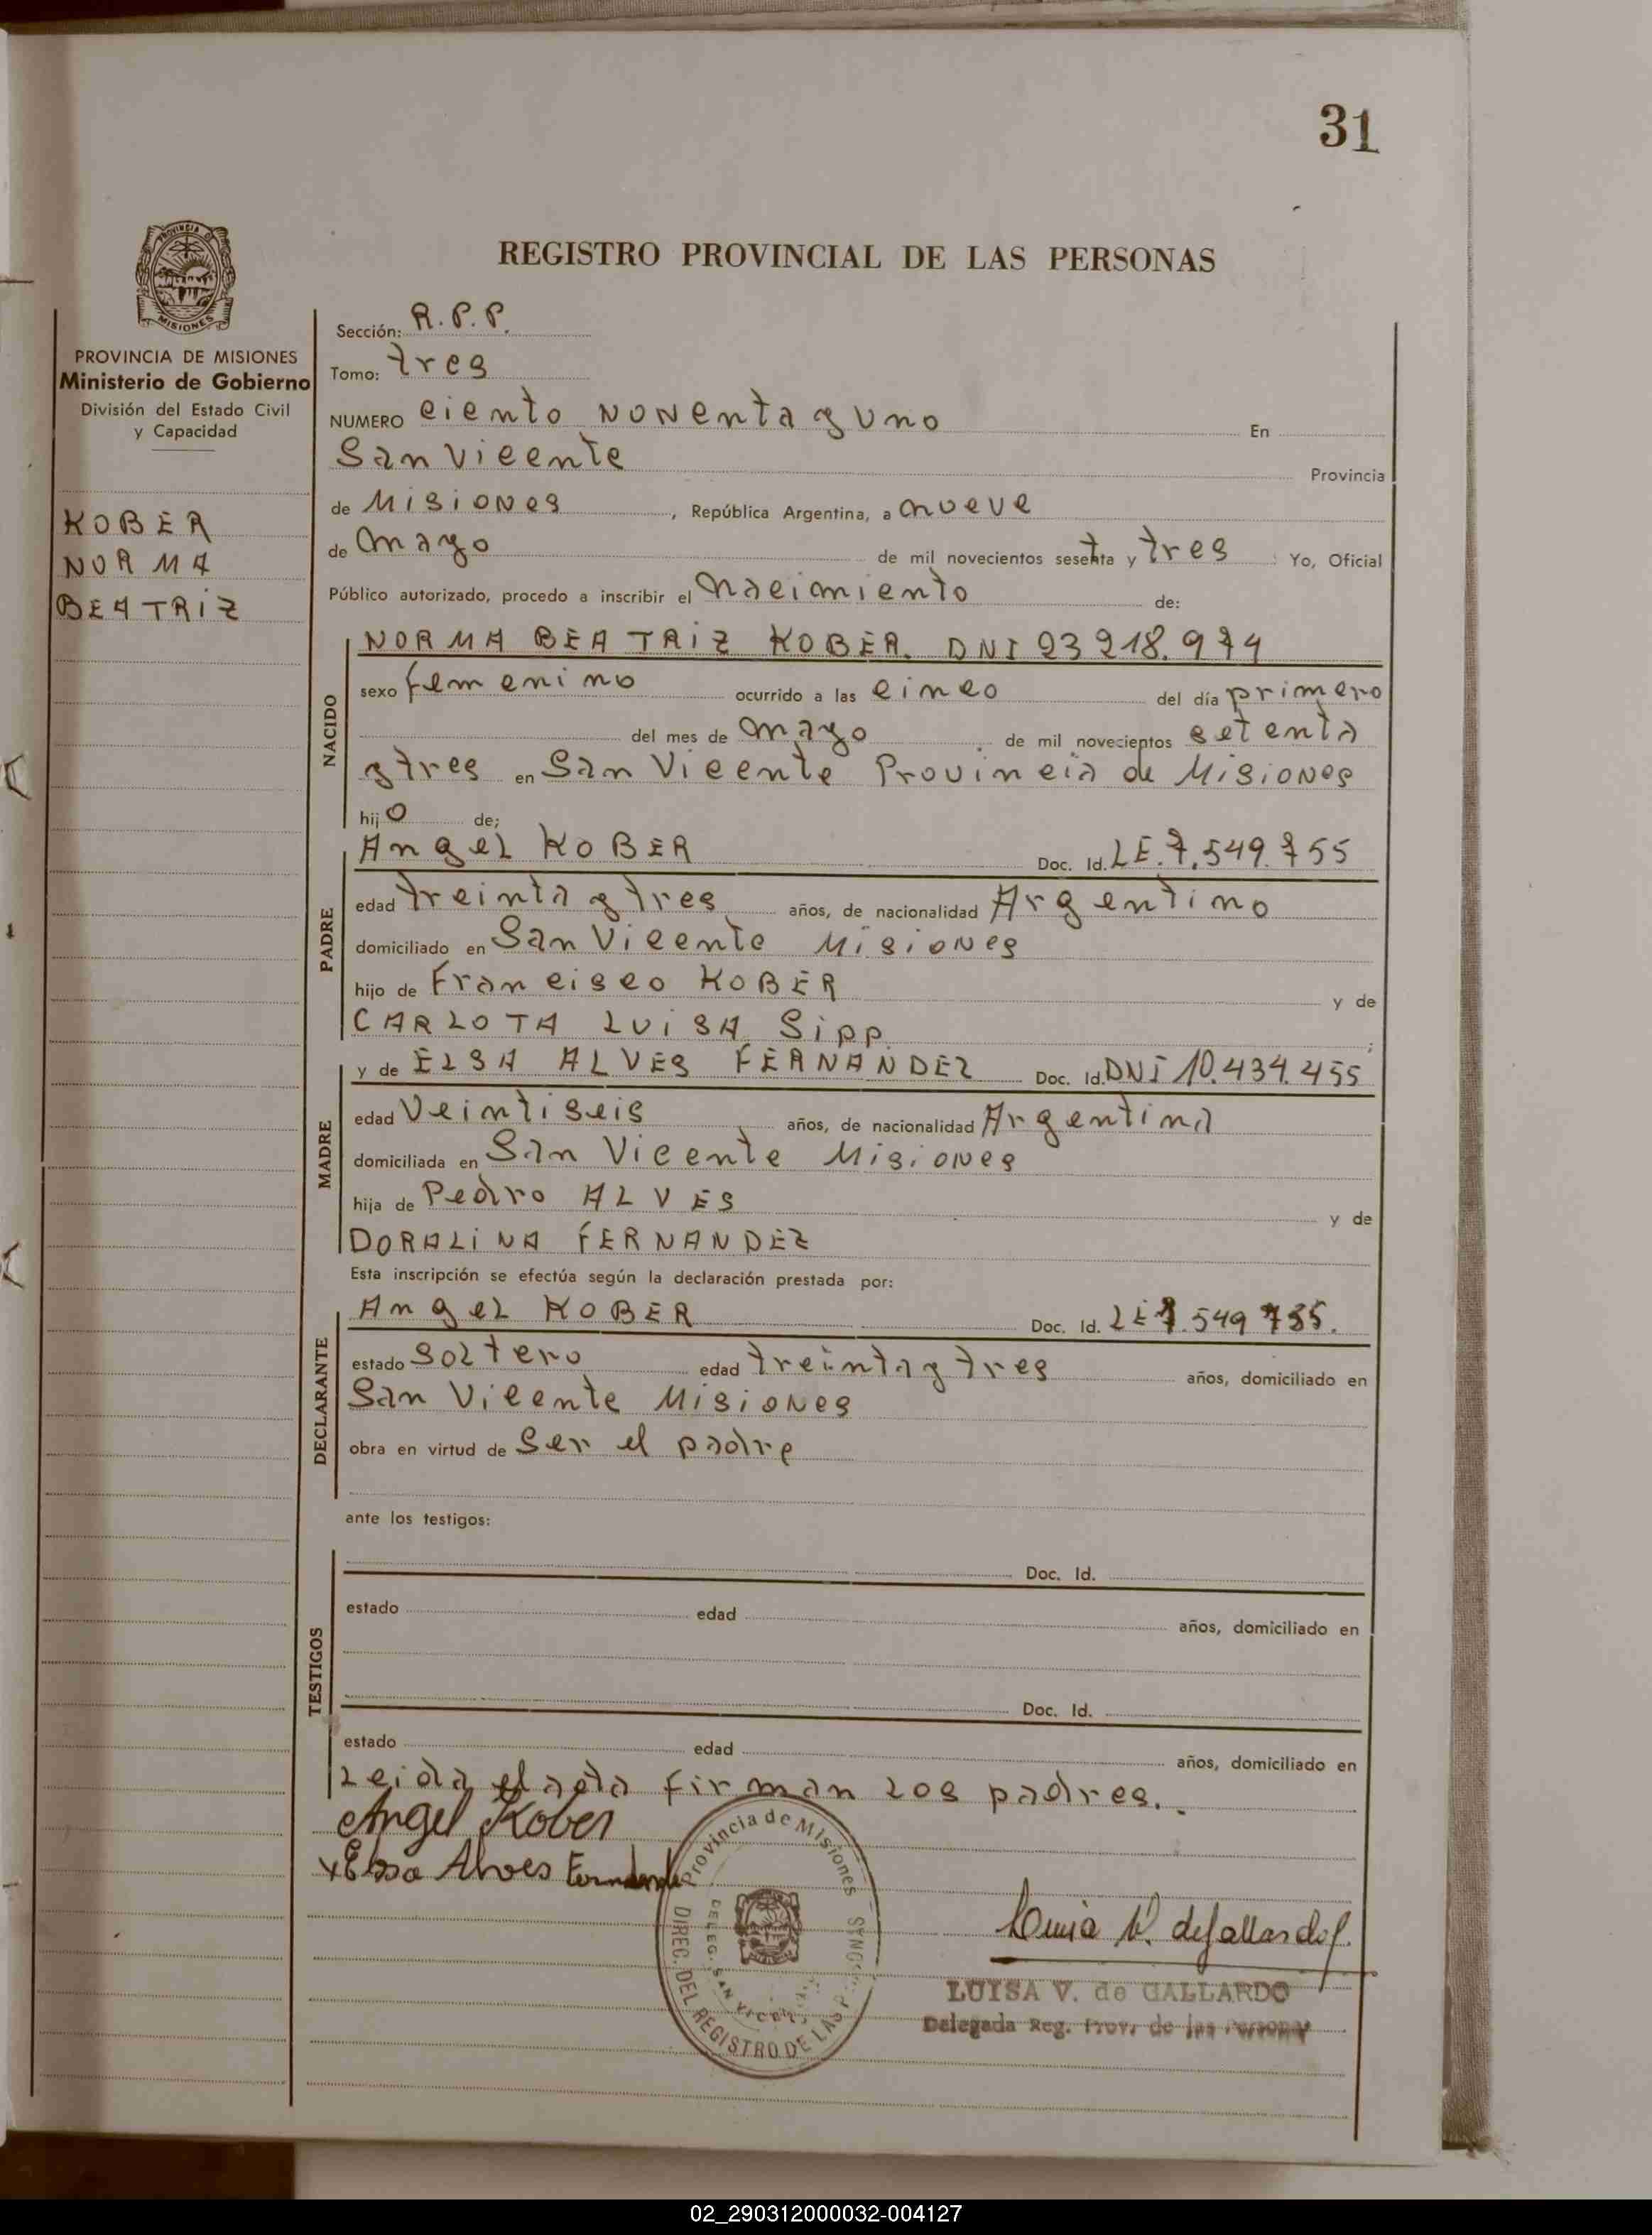 31
PROVINCIA DE MISIONES
REGISTRO PROVINCIAL DE LAS PERSONAS
PROVINCIA DE MISIONES
Ministerio de Gobierno
División del Estado Civil
y Capacidad
KOBER
NORMA
BEATRIZ
Sección: R.P.P.
Tomo: tres
NUMERO ciento noventa y uno En
San Vicente Provincia
de Misiones, República Argentina, a nueve
de mayo de mil novecientos setenta y tres Yo, Oficial
Público autorizado, procedo a inscribir el nacimiento de:
NACIDO
NORMA BEATRIZ KOBER. DNI 23 218.974
sexo femenino ocurrido a las cinco del día primero
del mes de mayo de mil novecientos setenta
y tres en San Vicente Provincia de Misiones
hijo de;
PADRE
Angel KOBER Doc. Id. LE.7.549.755
edad treinta y tres años, de nacionalidad Argentino
domiciliado en San Vicente Misiones
hijo de Francisco KOBER y de
CARLOTA LUISA Sipp;
MADRE
y de ELSA ALVES FERNANDEZ Doc. Id. DNI 10.434.455
edad Veintiseis años, de nacionalidad Argentina
domiciliada en San Vicente Misiones
hija de Pedro ALVES y de
DORALINA FERNANDEZ
Esta inscripción se efectúa según la declaración prestada por:
DECLARANTE
Angel KOBER Doc. Id. LE 7.549 755.
estado Soltero edad treinta y tres años, domiciliado en
San Vicente Misiones
obra en virtud de Ser el padre
ante los testigos:
TESTIGOS
Doc. Id.
estado edad años, domiciliado en
Doc. Id.
estado edad años, domiciliado en
Leida el acta firman los padres.
Angel Kober
x Elsa Alves Fernandez
Provincia de Misiones
DIREC. DEL REGISTRO DE LAS
DELEG. SAN VICENTE
Luisa V. de Gallardo
LUISA V. de GALLARDO
Delegada Reg. Prov. de las Personas
02_290312000032-004127